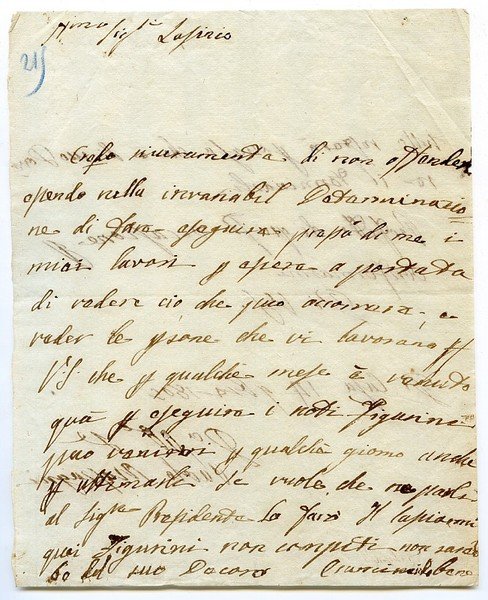 Amo Sig.r Lasirio
21)
Credo sicuramente di non offender
essendo nella invariabil Determinazio
ne di fare eseguire presso di me i
miei lavori p essere a portata
di vedere ciò che può occorrere, e
veder le psone che vi lavorano p
che p qualche mese è venuto
quà p eseguire i noti Figurini
può venirvi p qualche giorno anche
p ultimarli Se vuole che ne parli
al Sig.re Presidente Lo farò Il lasciarmi
quei Figurini non compiti non sareb
be del suo Decoro